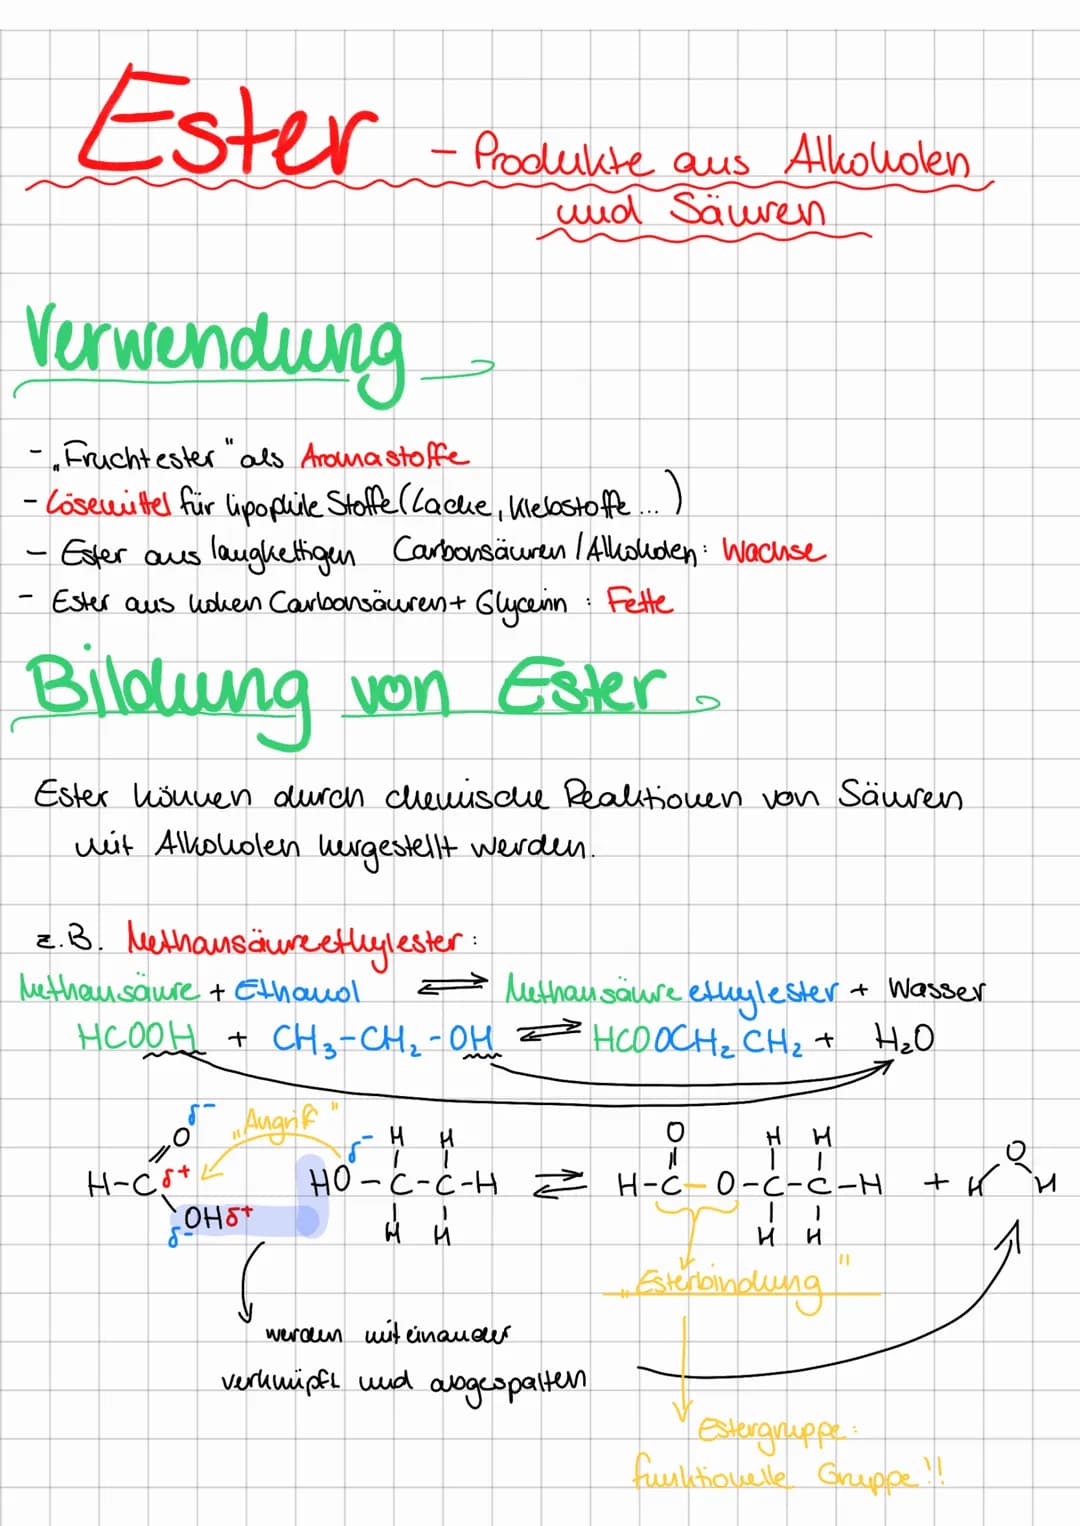 Ester - Produkte aus Alkoholen
und Säuren
Verwendung
- „Fruchtester" als Aromastoffe
- Lösemittel für lipophile Stoffe (Lacke, Klebstoffe ... )
- Ester aus langkettigen Carbonsäuren / Alkoholen: Wachse
- Ester aus hohen Carbonsäuren + Glycerin : Fette
Bildung von Ester
Ester können durch chemische Reaktionen von Säuren
mit Alkoholen hergestellt werden.
z.B. Methansäureethylester :
Methansäure + Ethanol ⇌ Methansäureethylester + Wasser
HCOOH + CH₃-CH₂-OH ⇌ HCOOCH₂CH₂ + H₂O
δ- „Angriff"
O δ- H H O H H O
H-C δ+ HO-C-C-H ⇌ H-C-O-C-C-H + H H
OH δ+ H H H H
δ-
„Esterbindung"
werden miteinander
verknüpft und abgespalten
Estergruppe:
funktionelle Gruppe!!